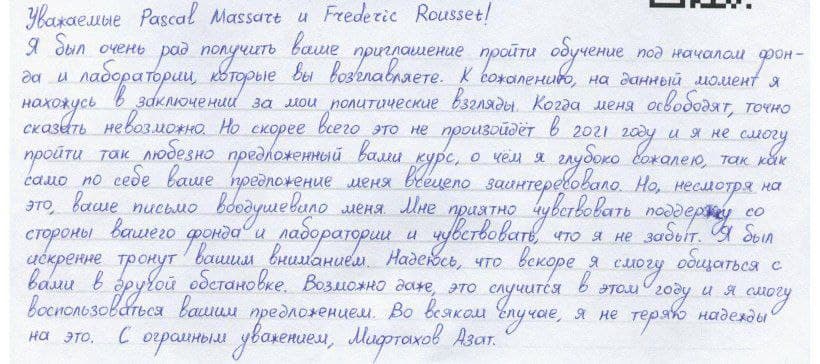 Уважаемые Pascal Massart и Frederic Rousset!
Я был очень рад получить ваше приглашение пройти обучение под началом фон-
да и лаборатории, которые вы возглавляете. К сожалению, на данный момент я
нахожусь в заключении за мои политические взгляды. Когда меня освободят, точно
сказать невозможно. Но скорее всего это не произойдёт в 2021 году и я не смогу
пройти так любезно предложенный вами курс, о чём я глубоко сожалею, так как
само по себе ваше предложение меня всецело заинтересовало. Но, несмотря на
это, ваше письмо воодушевило меня. Мне приятно чувствовать поддержку со
стороны вашего фонда и лаборатории и чувствовать, что я не забыт. Я был
искренне тронут вашим вниманием. Надеюсь, что вскоре я смогу общаться с
вами в другой обстановке. Возможно даже, это случится в этом году и я смогу
воспользоваться вашим предложением. Во всяком случае, я не теряю надежды
на это. С огромным уважением, Мифтахов Азат.